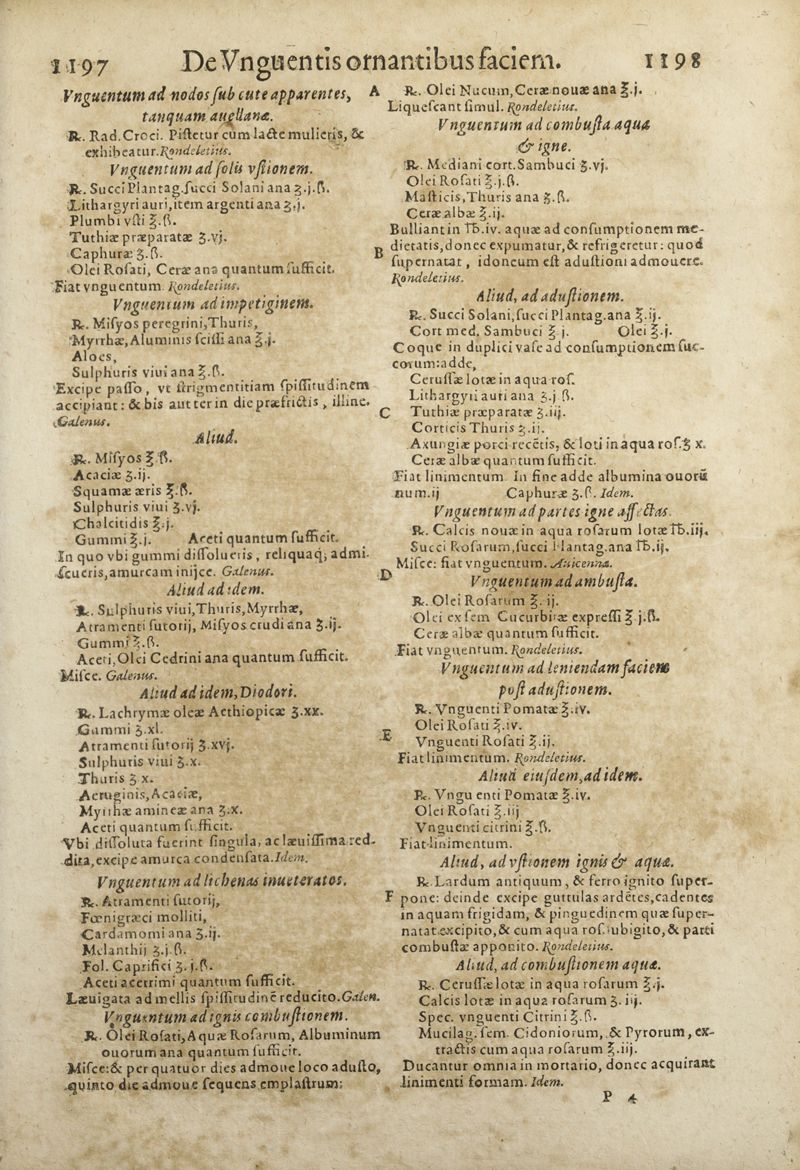 1197 De Vnguentis ornantibus faciem. 1198
Vnguentum ad nodos sub cute apparentes,
tanquam auellanæ.
℞. Rad. Croci. Pistetur cum lacte mulieris, &
exhibeatur. Rondeletius.
Vnguentum ad solis vstionem.
℞. Succi Plantag. succi Solani ana ʒ.j.ß.
Lithargyri auri, item argenti ana ʒ.j.
Plumbi vsti ℥.ß.
Tuthiæ præparatæ ʒ.vj.
Caphuræ ʒ.ß.
Olei Rosati, Ceræ ana quantum sufficit.
Fiat vnguentum. Rondeletius.
Vnguentum ad impetiginem.
℞. Misyos peregrini, Thuris,
Myrrhæ, Aluminis scissi ana ℥.j.
Aloes,
Sulphuris viui ana ℥.ß.
Excipe passo, vt strigmentitiam spissitudinem
accipiant: & bis aut ter in die præfrictis, illine.
Galenus.
Aliud.
℞. Misyos ℥.ß.
Acaciæ ʒ.ij.
Squamæ æris ℥.ß.
Sulphuris viui ʒ.vj.
Chalcitidis ℥.j.
Gummi ℥.j. Aceti quantum sufficit.
In quo vbi gummi dissolueris, reliquaq; admi-
scueris, amurcam inijce. Galenus.
Aliud ad idem.
℞. Sulphuris viui, Thuris, Myrrhæ,
Atramenti sutorij, Misyos crudi ana ʒ.ij.
Gummi ℥.ß.
Aceti, Olei Cedrini ana quantum sufficit.
Misce. Galenus.
Aliud ad idem, Diodori.
℞. Lachrymæ oleæ Aethiopicæ ʒ.xx.
Gummi ʒ.xl.
Atramenti sutorij ʒ.xvj.
Sulphuris viui ʒ.x.
Thuris ʒ x.
Aeruginis, Acaciæ,
Myrrhæ amineæ ana ʒ.x.
Aceti quantum sufficit.
Vbi dissoluta fuerint singula, ac læuissima red-
dita, excipe amurca condensata. Idem.
Vnguentum ad lichenas inueteratos.
℞. Atramenti sutorij,
Fœnigræci molliti,
Cardamomi ana ʒ.ij.
Melanthij ʒ.j.ß.
Fol. Caprifici ʒ.j.ß.
Aceti acerrimi quantum sufficit.
Læuigata ad mellis spissitudinē reducito. Galen.
Vnguentum ad ignis combustionem.
℞. Olei Rosati, Aquæ Rosarum, Albuminum
ouorum ana quantum sufficit.
Misce: & per quatuor dies admoue loco adusto,
quinto die admoue sequens emplastrum:
A ℞. Olei Nucum, Ceræ nouæ ana ℥.j.
Liquescant simul. Rondeletius.
Vnguentum ad combusta aqua
& igne.
℞. Mediani cort. Sambuci ʒ.vj.
Olei Rosati ℥.j.ß.
Masticis, Thuris ana ʒ.ß.
Ceræ albæ ℥.ij.
Bulliant in ℔.iv. aquæ ad consumptionem me-
B dietatis, donec expumatur, & refrigeretur: quod
supernatat, idoneum est adustioni admouere.
Rondeletius.
Aliud, ad adustionem.
℞. Succi Solani, succi Plantag. ana ℥.ij.
Cort med. Sambuci ℥ j. Olei ℥.j.
Coque in duplici vase ad consumptionem suc-
corum: adde,
Cerussæ lotæ in aqua ros.
Lithargyri auri ana ʒ.j ß.
C Tuthiæ præparatæ ʒ.iij.
Corticis Thuris ʒ.ij.
Axungiæ porci recētis, & loti in aqua ros. ʒ x.
Ceræ albæ quantum sufficit.
Fiat linimentum. In fine adde albumina ouorū
num.ij Caphuræ ʒ.ß. Idem.
Vnguentum ad partes igne affectas.
℞. Calcis nouæ in aqua rosarum lotæ ℔.iij.
Succi Rosarum, succi Plantag. ana ℔.ij.
Misce: fiat vnguentum. Auicenna.
D Vnguentum ad ambusta.
℞. Olei Rosarum ℥. ij.
Olei ex sem Cucurbitæ expressi ℥ j.ß.
Ceræ albæ quantum sufficit.
Fiat vnguentum. Rondeletius.
Vnguentum ad leniendam faciem
post adustionem.
℞. Vnguenti Pomatæ ℥.iv.
Olei Rosati ℥.iv.
E Vnguenti Rosati ℥.ij.
Fiat linimentum. Rondeletius.
Aliud eiusdem, ad idem.
℞. Vnguenti Pomatæ ℥.iv.
Olei Rosati ℥.iij
Vnguenti citrini ℥.ß.
Fiat linimentum.
Aliud, ad vstionem ignis & aquæ.
℞ Lardum antiquum, & ferro ignito super-
F pone: deinde excipe guttulas ardētes, cadentes
in aquam frigidam, & pinguedinem quæ super-
natat excipito, & cum aqua ros. subigito, & parti
combustæ apponito. Rondeletius.
Aliud, ad combustionem aquæ.
℞. Cerussæ lotæ in aqua rosarum ℥.j.
Calcis lotæ in aqua rosarum ʒ. iij.
Spec. vnguenti Citrini ℥.ß.
Mucilag. sem. Cidoniorum, & Pyrorum, ex-
tractis cum aqua rosarum ℥.iij.
Ducantur omnia in mortario, donec acquirant
linimenti formam. Idem.
P 4